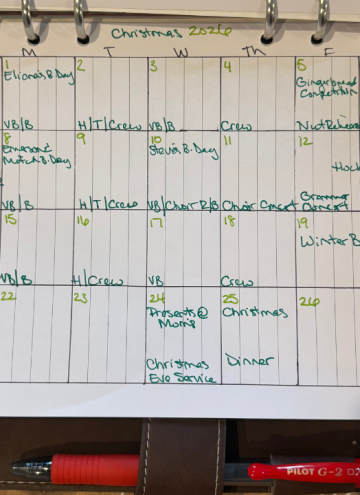 Christmas 2026
M T W Th F
1 2 3 4 5
Eliana's B.Day
Gingerbread
Competition
VB/B H/T/Crew VB/B Crew
8 9 10 11 12
Emerson &
B.Day
Stevi's B.Day
VB/B H/T/Crew VB/Choir R/B Choir Concert
Concert
15 16 17 18 19
Winter B
VB/B H/Crew VB Crew
22 23 24 25 26
Presents @
Mom's
Christmas
Christmas
Eve Service
Dinner
PILOT G-2 07